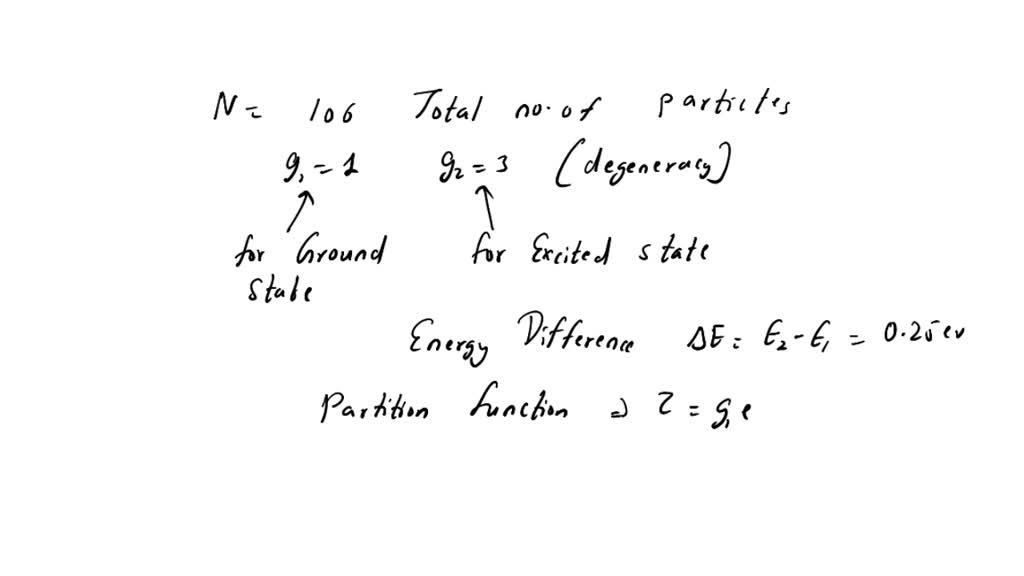 N = 106 Total no. of particles
g₁ = 1 g₂ = 3 (degeneracy)
for Ground for Excited state
State
Energy Difference ΔE = E₂ - E₁ = 0.25 ev
Partition function ⇒ Z = g₁ e